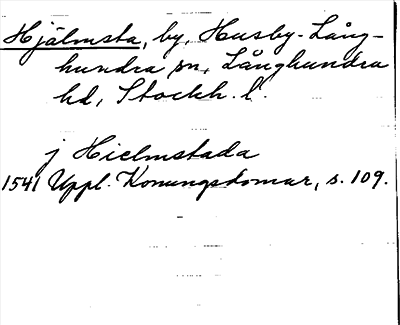 Hjälmsta, by, Husby-Lång-
hundra sn, Långhundra
hd, Stockh. l.
j Hielmstada
1541 Uppl. Konungsdomar, s. 109.